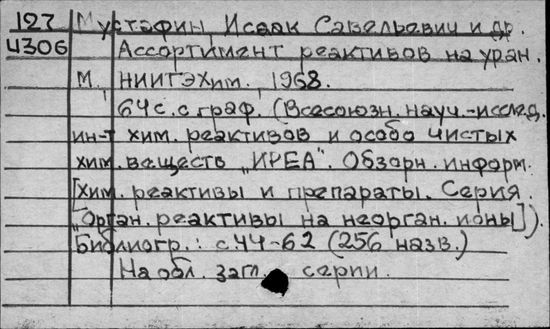 127 Мустафин, Исаак Савельевич и др.
4306 Ассортимент реактивов на уран.
М., НИИТЭХим., 1968.
64 с. с граф. (Всесоюзн. науч.-исслед.
ин-т хим. реактивов и особо чистых
хим. веществ „ИРЕА". Обзорн. информ.
[Хим. реактивы и препараты. Серия
„Орган. реактивы на неорган. ионы]).
Библиогр.: с 44-62 (256 назв.)
На обл. загл. серии.